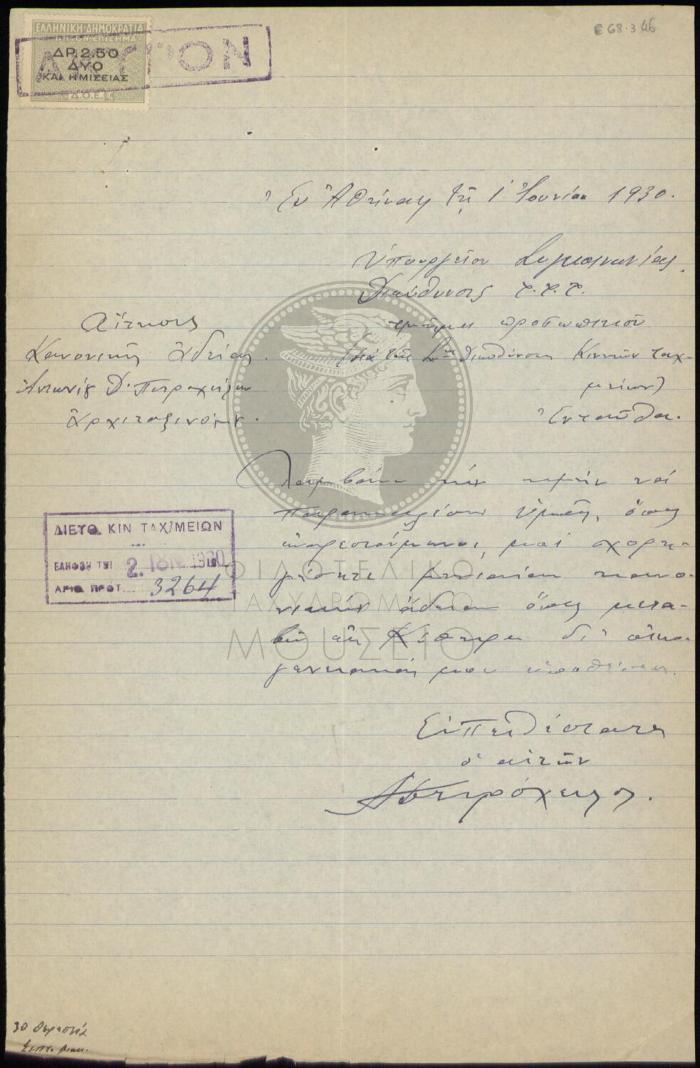 ΕΛΛΗΝΙΚΗ ΔΗΜΟΚΡΑΤΙΑ
ΔΡ. 2.50
ΔΥΟ
ΚΑΙ ΗΜΙΣΕΙΑΣ
Ε 68.3
Ἐν Ἀθήναις τῇ 1 Ἰουνίου 1930.
Ὑπουργεῖον Συγκοινωνίας
Διεύθυνσις Τ.Τ.Τ.
τμῆμα προσωπικοῦ
Διὰ τῆς Διευθύνσεως Κινητῶν ταχ
μείων)
Ἐνταῦθα.
Αἴτησις
Κανονικῆς ἀδείας
Ἀντωνίου Δ. Πετροχείλου
Ἀρχιταξινόμου.
Λαμβάνω τὴν τιμὴν νὰ
παρακαλέσω Ὑμᾶς, ὅπως
εὐαρεστούμενοι, μοὶ χορη
γήσητε μηνιαίαν κανο
νικὴν ἄδειαν ὅπως μετα
βῶ εἰς Κύθηρα δι' οἰκο
γενειακάς μου ὑποθέσεις.
Εὐπειθέστατος
ὁ αἰτῶν
Α Πετρόχειλος.
ΔΙΕΥΘ. ΚΙΝ ΤΑΧ/ΜΕΙΩΝ
ΕΛΗΦΘΗ ΤΗΙ 2. ΙΟΥΝ. 1930
ΑΡΙΘ. ΠΡΩΤ. 3264
ΦΙΛΟΤΕΛΙΚΟ
ΤΑΧΥΔΡΟΜΙΚΟ
ΜΟΥΣΕΙΟ
30